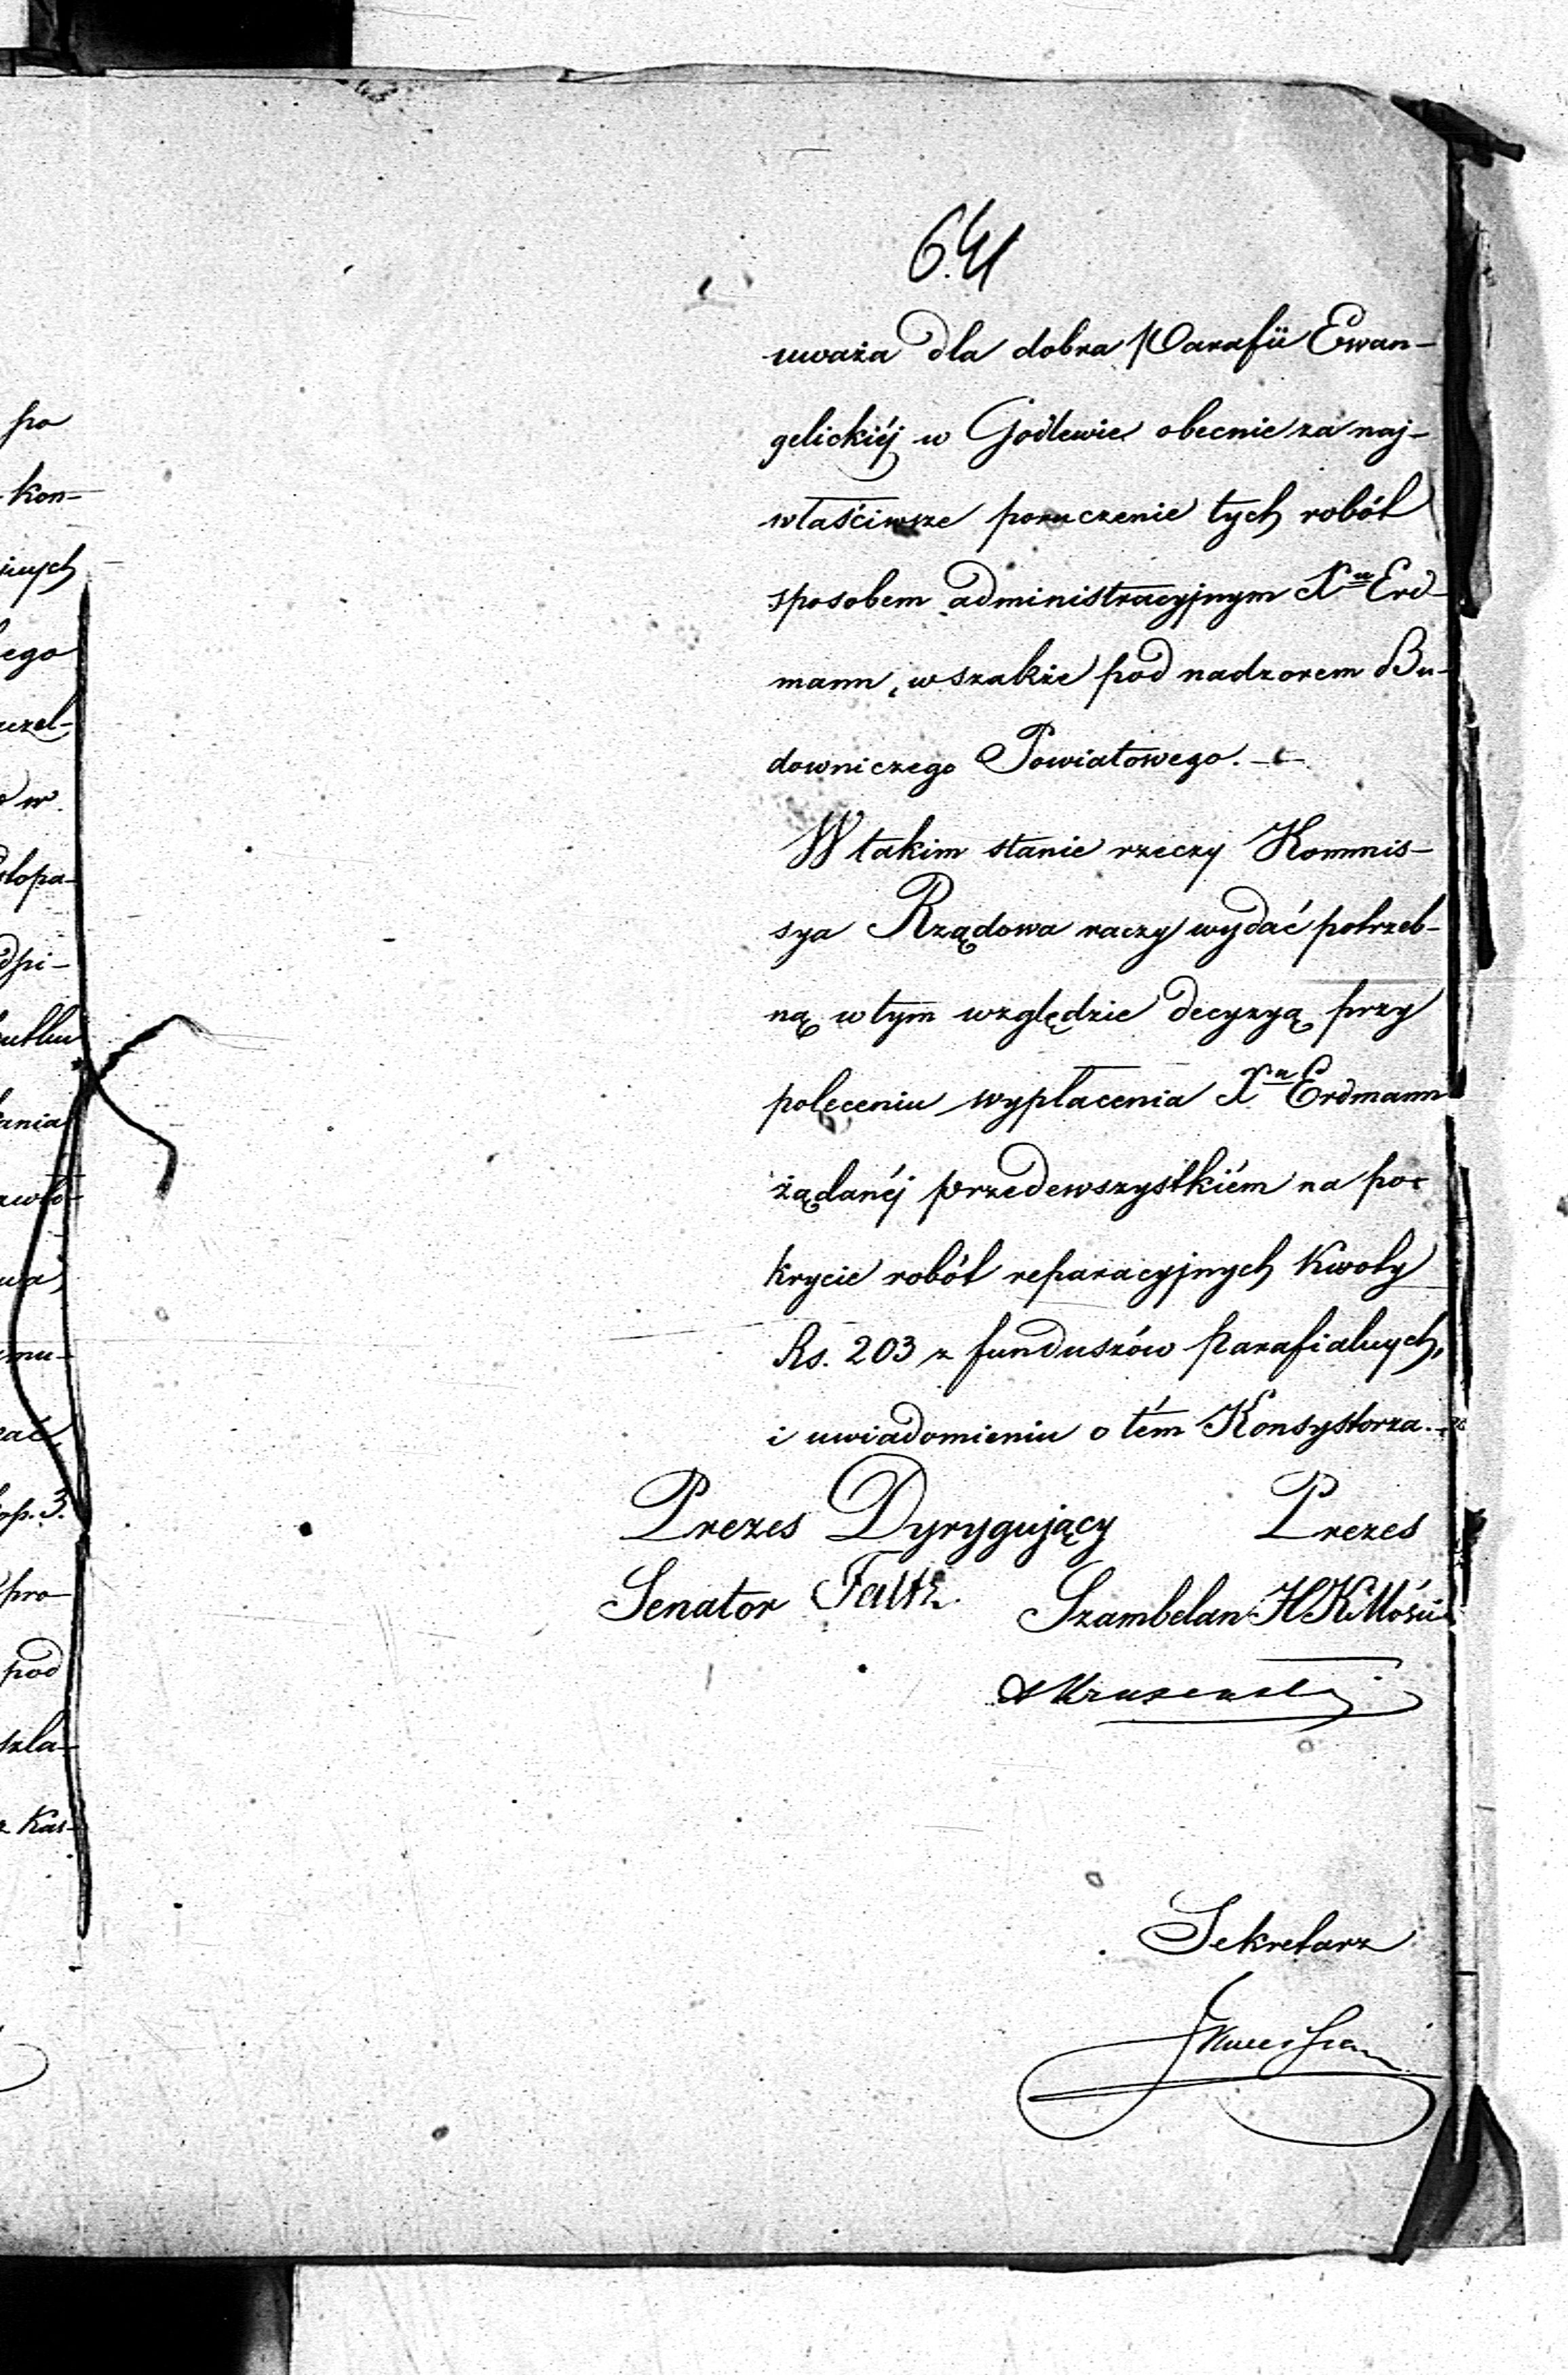 641
uważa dla dobra Parafii Ewan-
gelickiéj w Godlewie obecnie za naj-
właściwsze poruczenie tych robót
sposobem administracyjnym Xu Erd-
mann, wszakże pod nadzorem Bu-
downiczego Powiatowego.
W takim stanie rzeczy Kommis-
sya Rządowa raczy wydać potrzeb-
ną w tym względzie decyzyą przy
poleceniu wypłacenia Xu Erdmann
żądanéj przedewszystkiém na po-
krycie robót reparacyjnych kwoty
Rs. 203 z funduszów parafialnych,
i uwiadomieniu o tém Konsystorza.
Prezes Dyrygujący Prezes
Senator Szambelan
Sekretarz
po
kon-
ego
w
pi-
ania
op. 3.
pro-
pod
szla-
Kas-